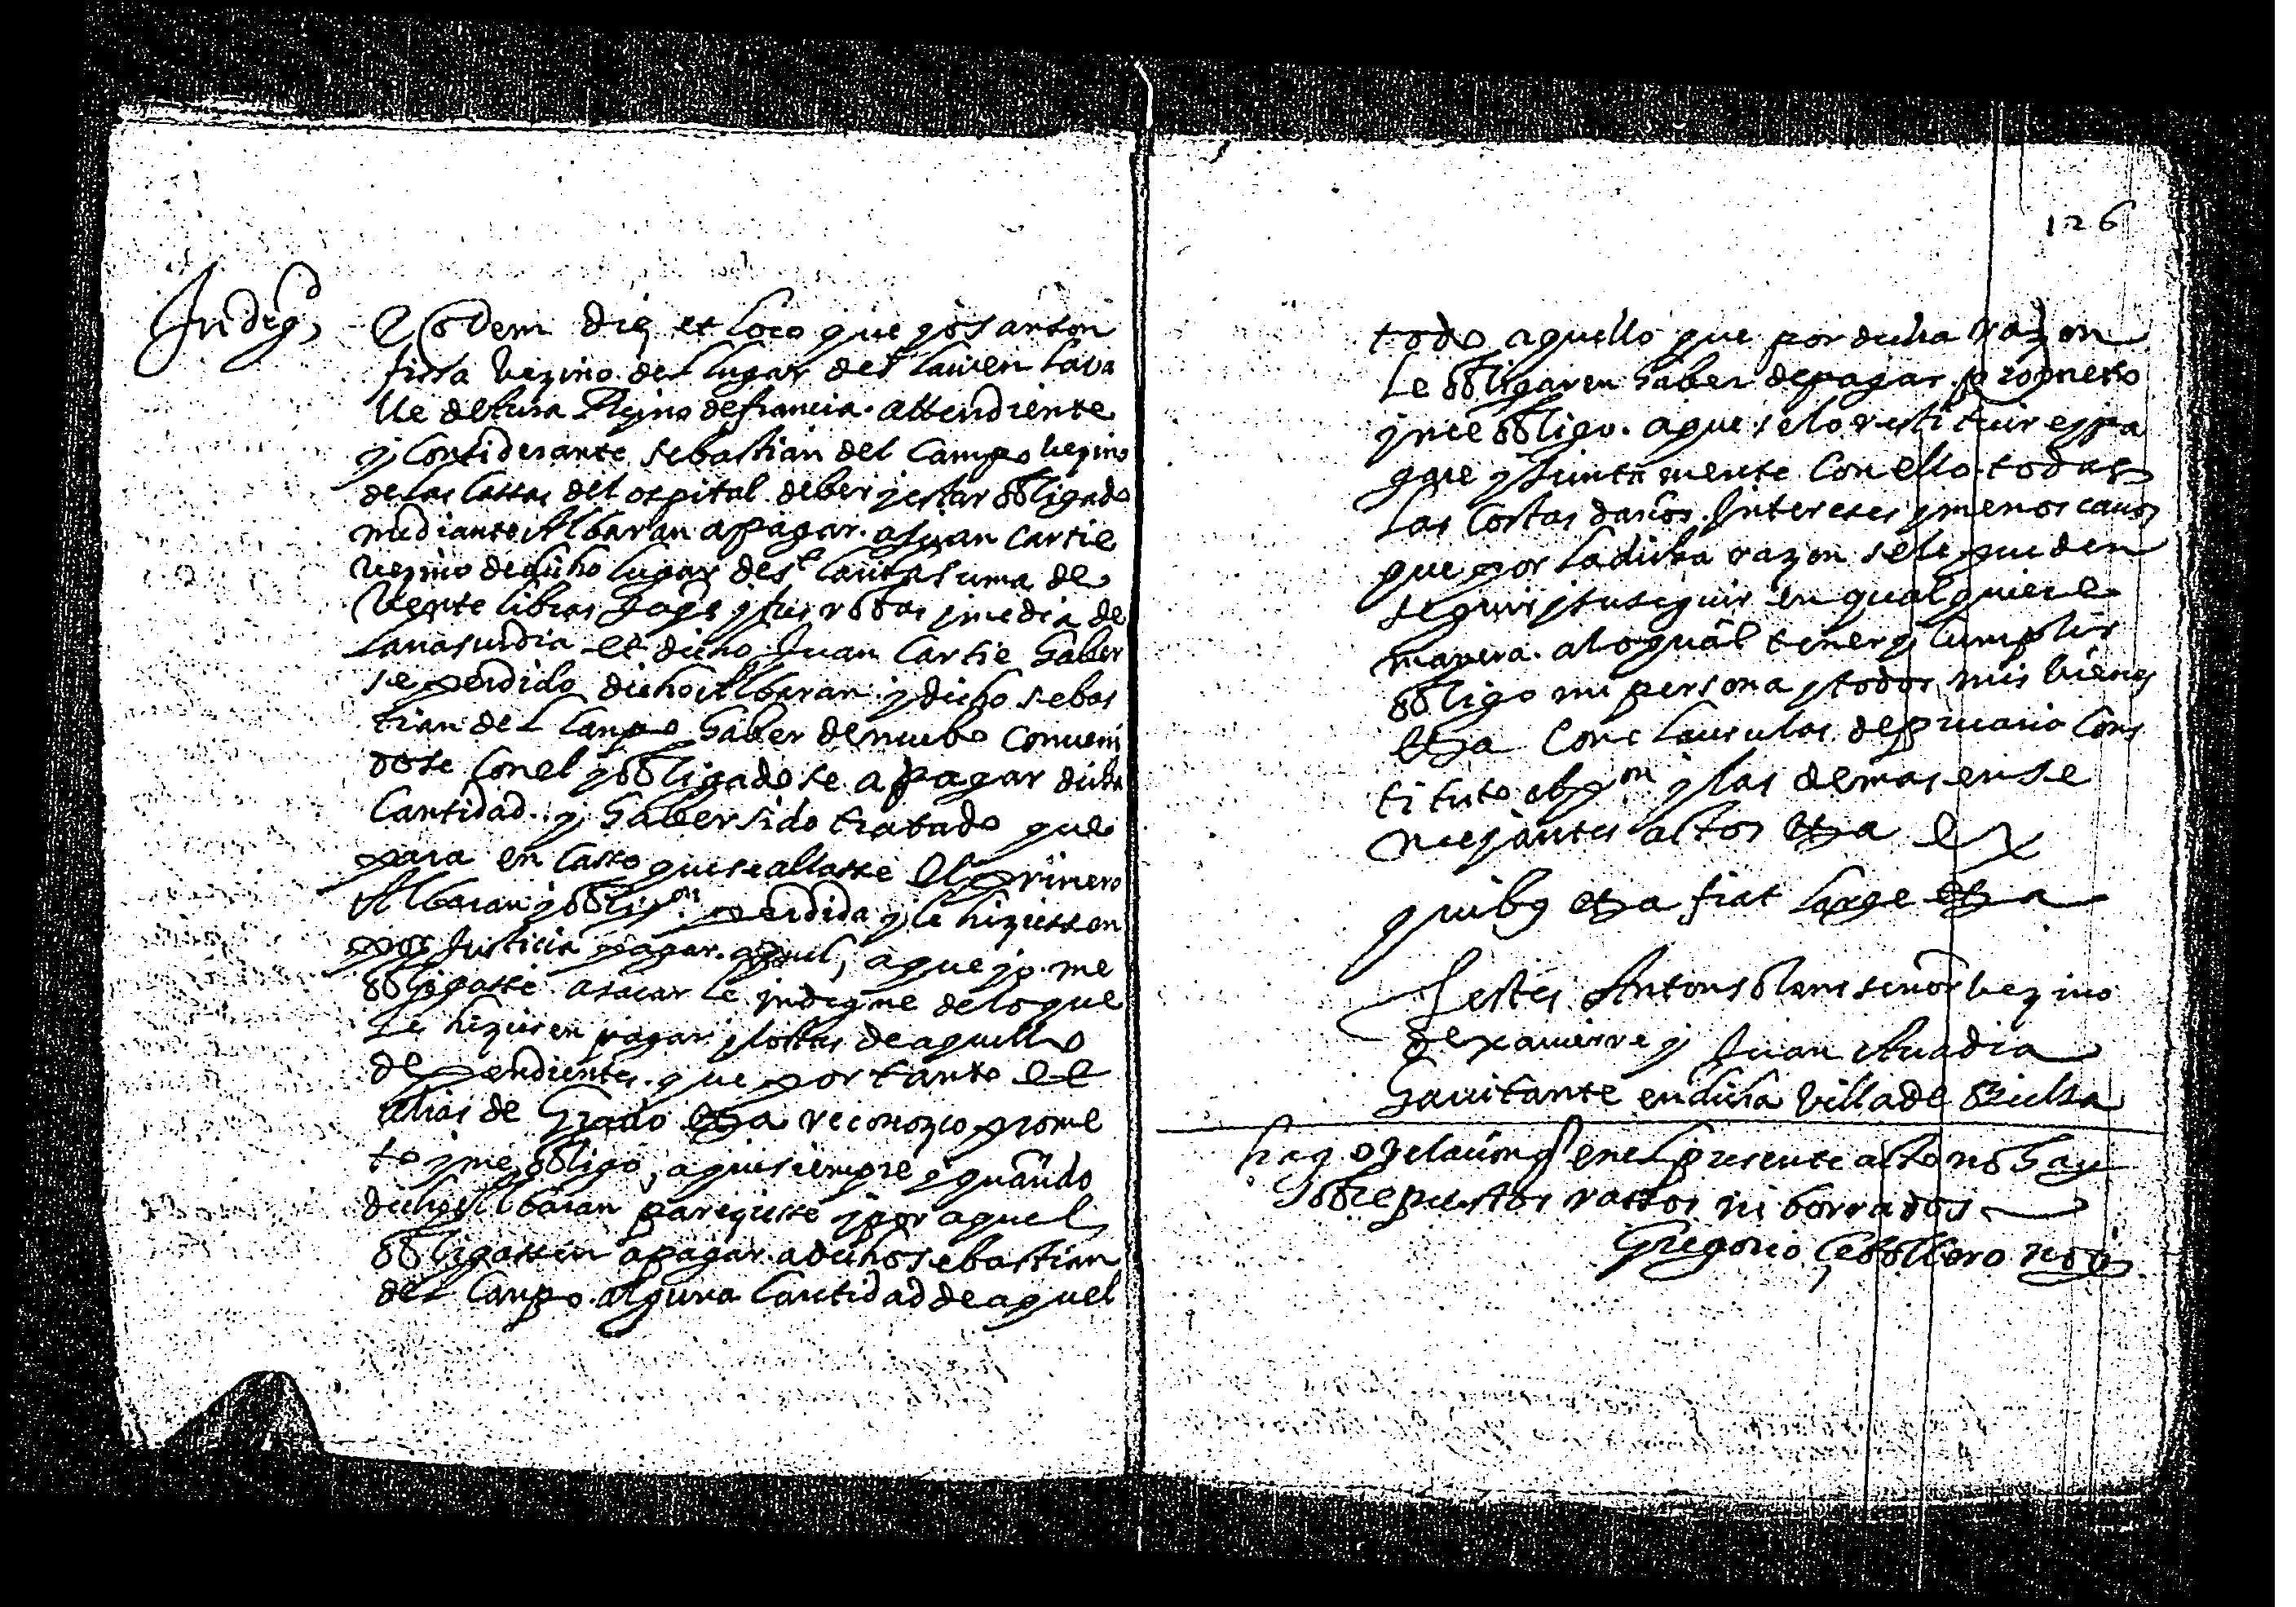 Indeg
Eodem die et loco que yo Jos anton
fissa vezino del lugar de St Lauien la va
lle de Lura Reyno de francia. attendiente
y Considerante sebastian del Campo vezino
de las Cassas del ospital deber y estar obligado
mediante Albaran a pagar a Juan Cartie
vezino de dicho lugar de St la suma de
veynte libras y seis robas y media de
lana surdia et dicho Juan Cartie haber
se perdido dicho Albaran y dicho sebas
tian del Campo haber de nuebo Conueni
dose Con el y obligadose a pagar dicha
Cantidad. y haber sido tratado que
para en Casso que se allasse el primero
Albaran y oblig.on perdida y le hiziessen
por Justicia pagar aquel, a que yo me
obligasse a sacar le indegne de lo que
le hizieren pagar y Costas de aquello
dependientes. que por tanto et
alias de Grado etza reconozco prome
to y me obligo, a que siempre y quando
dicho Albaran pareziesse y por aquel
obligassen a pagar a dicho sebastian
del Campo alguna Cantidad de aquel
126
todo aquello que por dicha razon
le obligaren haber de pagar prometo
y me obligo. a que se lo restituire y pa
gare y Juntamente Con ello todas
las Costas daños Intereses y menoscauos
que por la dicha razon se le pueden
seguir y suseguir en qualquiere
manera. a lo qual tener y Cumplir
obligo mi persona y todos mis bienes
etza Con Clausulas de precario Cons
tituto ap.on y las demas en se
mejantes actos etza ex
quibus etza fiat large etza
Testes Anton solans señor vezino
de xauierre y Juan Auadia
hauitante en dicha villa de Bielsa
hago relacion q en el presente acto no hay
sobrepuestos rassos ni borrados
Gregorio Cebollero noto